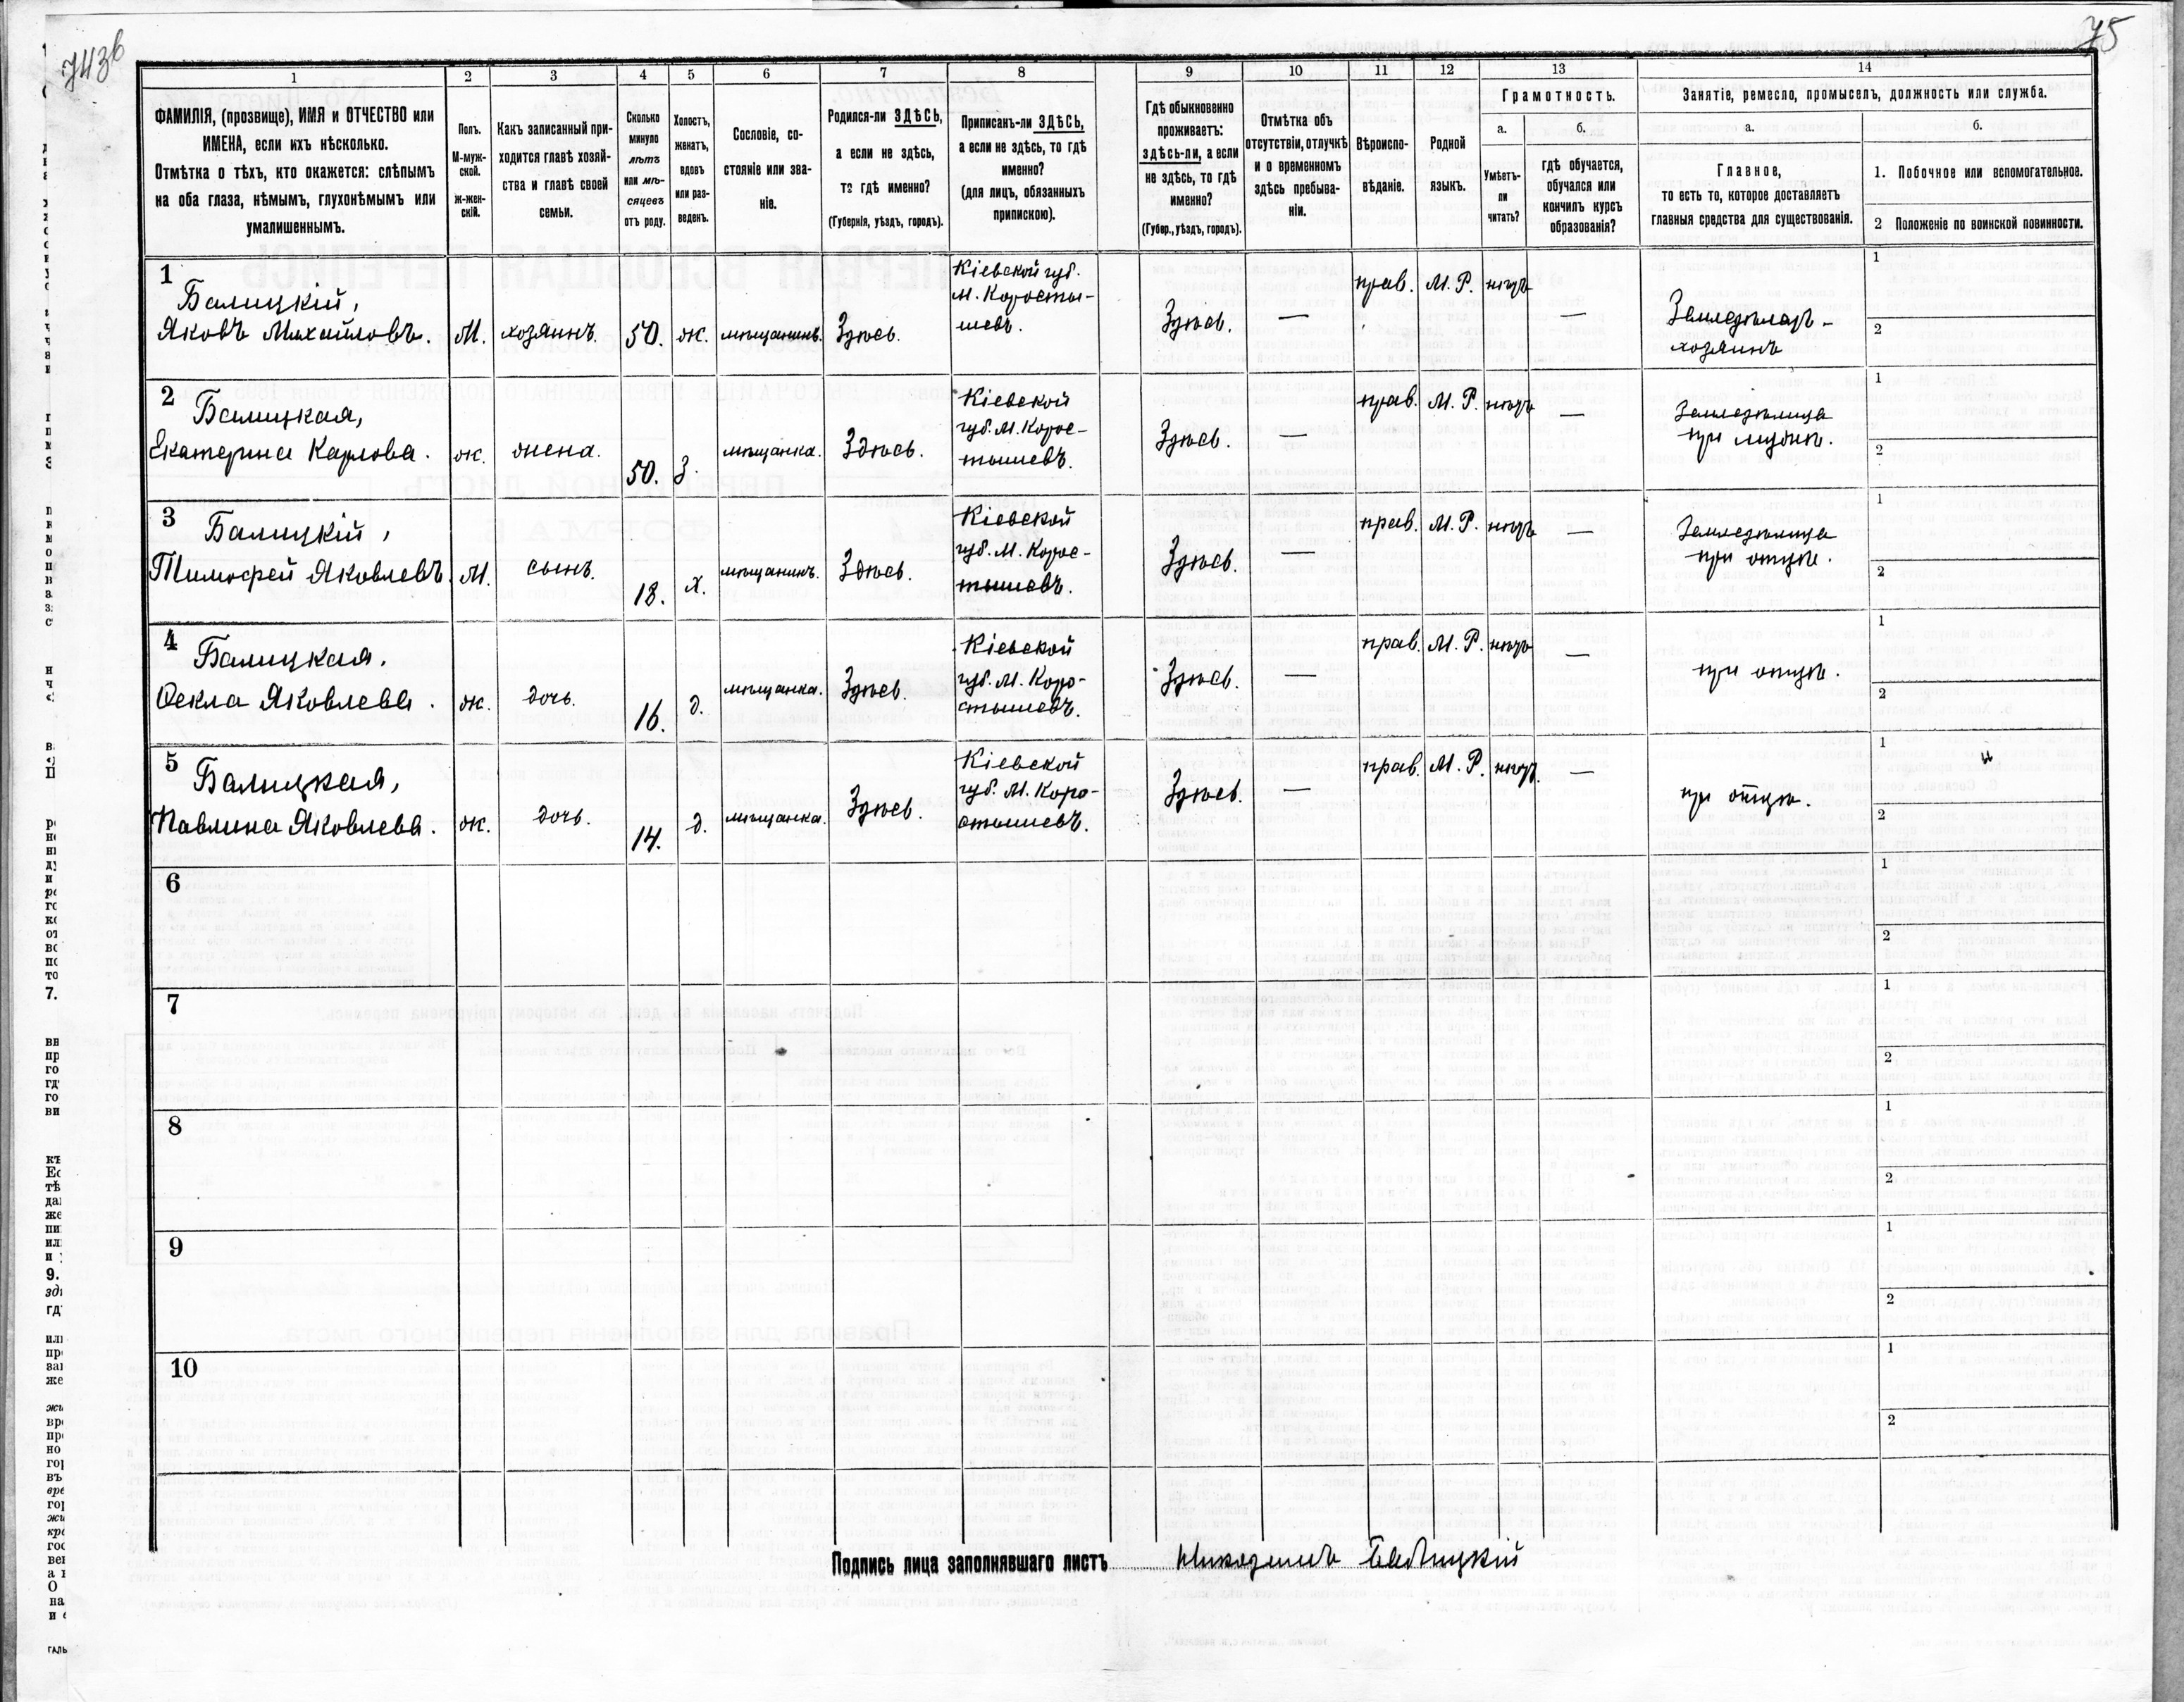 743б
75
1 2 3 4 5 6 7 8 9 10 11 12 13 14
ФАМИЛІЯ, (прозвище), ИМЯ и ОТЧЕСТВО или
ИМЕНА, если ихъ нѣсколько.
Отмѣтка о тѣхъ, кто окажется: слѣпымъ
на оба глаза, нѣмымъ, глухонѣмымъ или
умалишеннымъ.
Полъ.
М-муж-
ской.
ж-жен-
скій.
Какъ записанный при-
ходится главѣ хозяй-
ства и главѣ своей
семьи.
Сколько
минуло
лѣтъ
или мѣ-
сяцевъ
отъ роду.
Холостъ,
женатъ,
вдовъ
или раз-
веденъ.
Сословіе, со-
стояніе или зва-
ніе.
Родился-ли ЗДѢСЬ,
а если не здѣсь,
то гдѣ именно?
(Губернія, уѣздъ, городъ).
Приписанъ-ли ЗДѢСЬ,
а если не здѣсь, то гдѣ
именно?
(для лицъ, обязанныхъ
припискою).
Гдѣ обыкновенно
проживаетъ:
здѣсь-ли, а если
не здѣсь, то гдѣ
именно?
(Губер., уѣздъ, городъ).
Отмѣтка объ
отсутствіи, отлучкѣ
и о временномъ
здѣсь пребыва-
ніи.
Вѣроиспо-
вѣданіе.
Родной
языкъ.
Грамотность.
а.
Умѣетъ-
ли
читать?
б.
гдѣ обучается,
обучался или
кончилъ курсъ
образованія?
Занятіе, ремесло, промыселъ, должность или служба.
а.
Главное,
то есть то, которое доставляетъ
главныя средства для существованія.
б.
1. Побочное или вспомогательное.
2 Положеніе по воинской повинности.
1
Балицкій,
Яковъ Михайловъ.
М.
хозяинъ.
50.
ж.
мѣщанинъ.
Здѣсь.
Кіевской губ.
М. Коросты-
шевъ.
Здѣсь.
—
прав.
М. Р.
нѣтъ
—
Земледѣлецъ-
хозяинъ
1
2
2
Балицкая,
Екатерина Карлова.
ж.
жена.
50.
З.
мѣщанка.
Здѣсь.
Кіевской
губ. М. Корос-
тышевъ.
Здѣсь.
—
прав.
М. Р.
нѣтъ
—
Земледѣлица
при мужѣ.
1
2
3
Балицкій,
Тимофей Яковлевъ
М.
сынъ.
18.
х.
мѣщанинъ.
Здѣсь.
Кіевской
губ. М. Корос-
тышевъ.
Здѣсь.
—
прав.
М. Р.
нѣтъ
—
Земледѣлица
при отцѣ.
1
2
4
Балицкая.
Ѳекла Яковлева.
ж.
дочь.
16.
д.
мѣщанка.
Здѣсь.
Кіевской
губ. М. Коро-
стышевъ.
Здѣсь.
—
прав.
М. Р.
нѣтъ
—
при отцѣ.
1
2
5
Балицкая,
Павлина Яковлева.
ж.
дочь.
14.
д.
мѣщанка.
Здѣсь.
Кіевской
губ. М. Коро-
стышевъ.
Здѣсь.
—
прав.
М. Р.
нѣтъ.
—
при отцѣ.
1
2
6
1
2
7
1
2
8
1
2
9
1
2
10
1
2
Подпись лица заполнявшаго листъ Никодимъ Балицкій